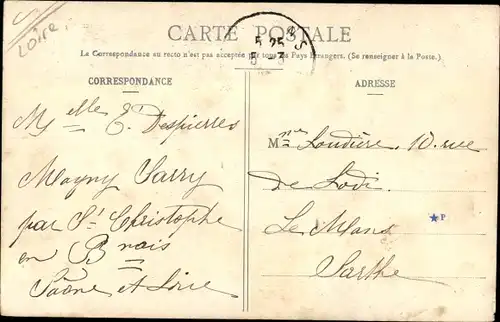 Loire
CARTE POSTALE
5 25
La Correspondance au recto n'est pas acceptée par tous les Pays Etrangers. (Se renseigner à la Poste.)
CORRESPONDANCE
ADRESSE
Melle E. Despierres
Magny Sarry
par St Christophe
en Brnais
Saône et Loire
Mme Loudière, 10. rue
de Lodi
Le Mans
Sarthe
★P